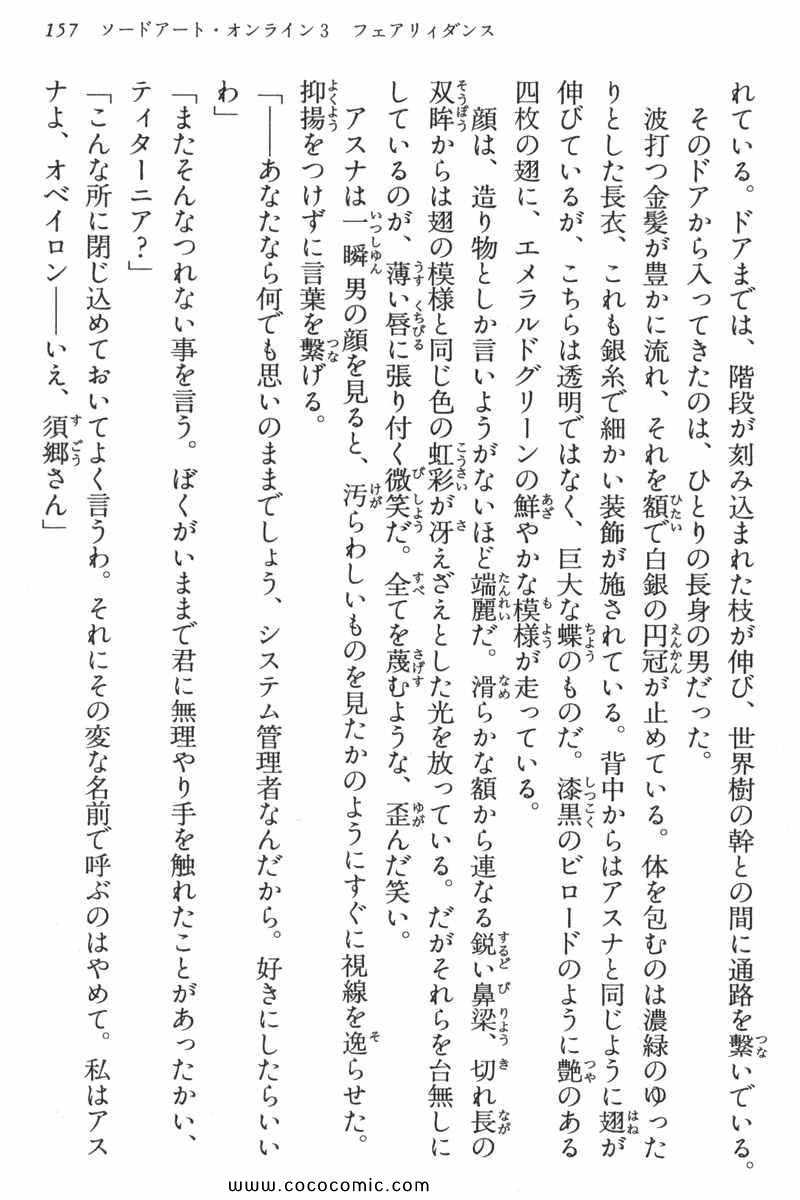 157　ソードアート・オンライン3　フェアリィダンス
れている。ドアまでは、階段が刻み込まれた枝が伸び、世界樹の幹との間に通路を繋いでいる。
そのドアから入ってきたのは、ひとりの長身の男だった。
波打つ金髪が豊かに流れ、それを額で白銀の円冠が止めている。体を包むのは濃緑のゆった
りとした長衣、これも銀糸で細かい装飾が施されている。背中からはアスナと同じように翅が
伸びているが、こちらは透明ではなく、巨大な蝶のものだ。漆黒のビロードのように艶のある
四枚の翅に、エメラルドグリーンの鮮やかな模様が走っている。
顔は、造り物としか言いようがないほど端麗だ。滑らかな額から連なる鋭い鼻梁、切れ長の
双眸からは翅の模様と同じ色の虹彩が冴えざえとした光を放っている。だがそれらを台無しに
しているのが、薄い唇に張り付く微笑だ。全てを蔑むような、歪んだ笑い。
アスナは一瞬男の顔を見ると、汚らわしいものを見たかのようにすぐに視線を逸らせた。
抑揚をつけずに言葉を繋げる。
「――あなたなら何でも思いのままでしょう、システム管理者なんだから。好きにしたらいい
わ」
「またそんなつれない事を言う。ぼくがいままで君に無理やり手を触れたことがあったかい、
ティターニア？」
「こんな所に閉じ込めておいてよく言うわ。それにその変な名前で呼ぶのはやめて。私はアス
ナよ、オベイロン――いえ、須郷さん」
www.cococomic.com